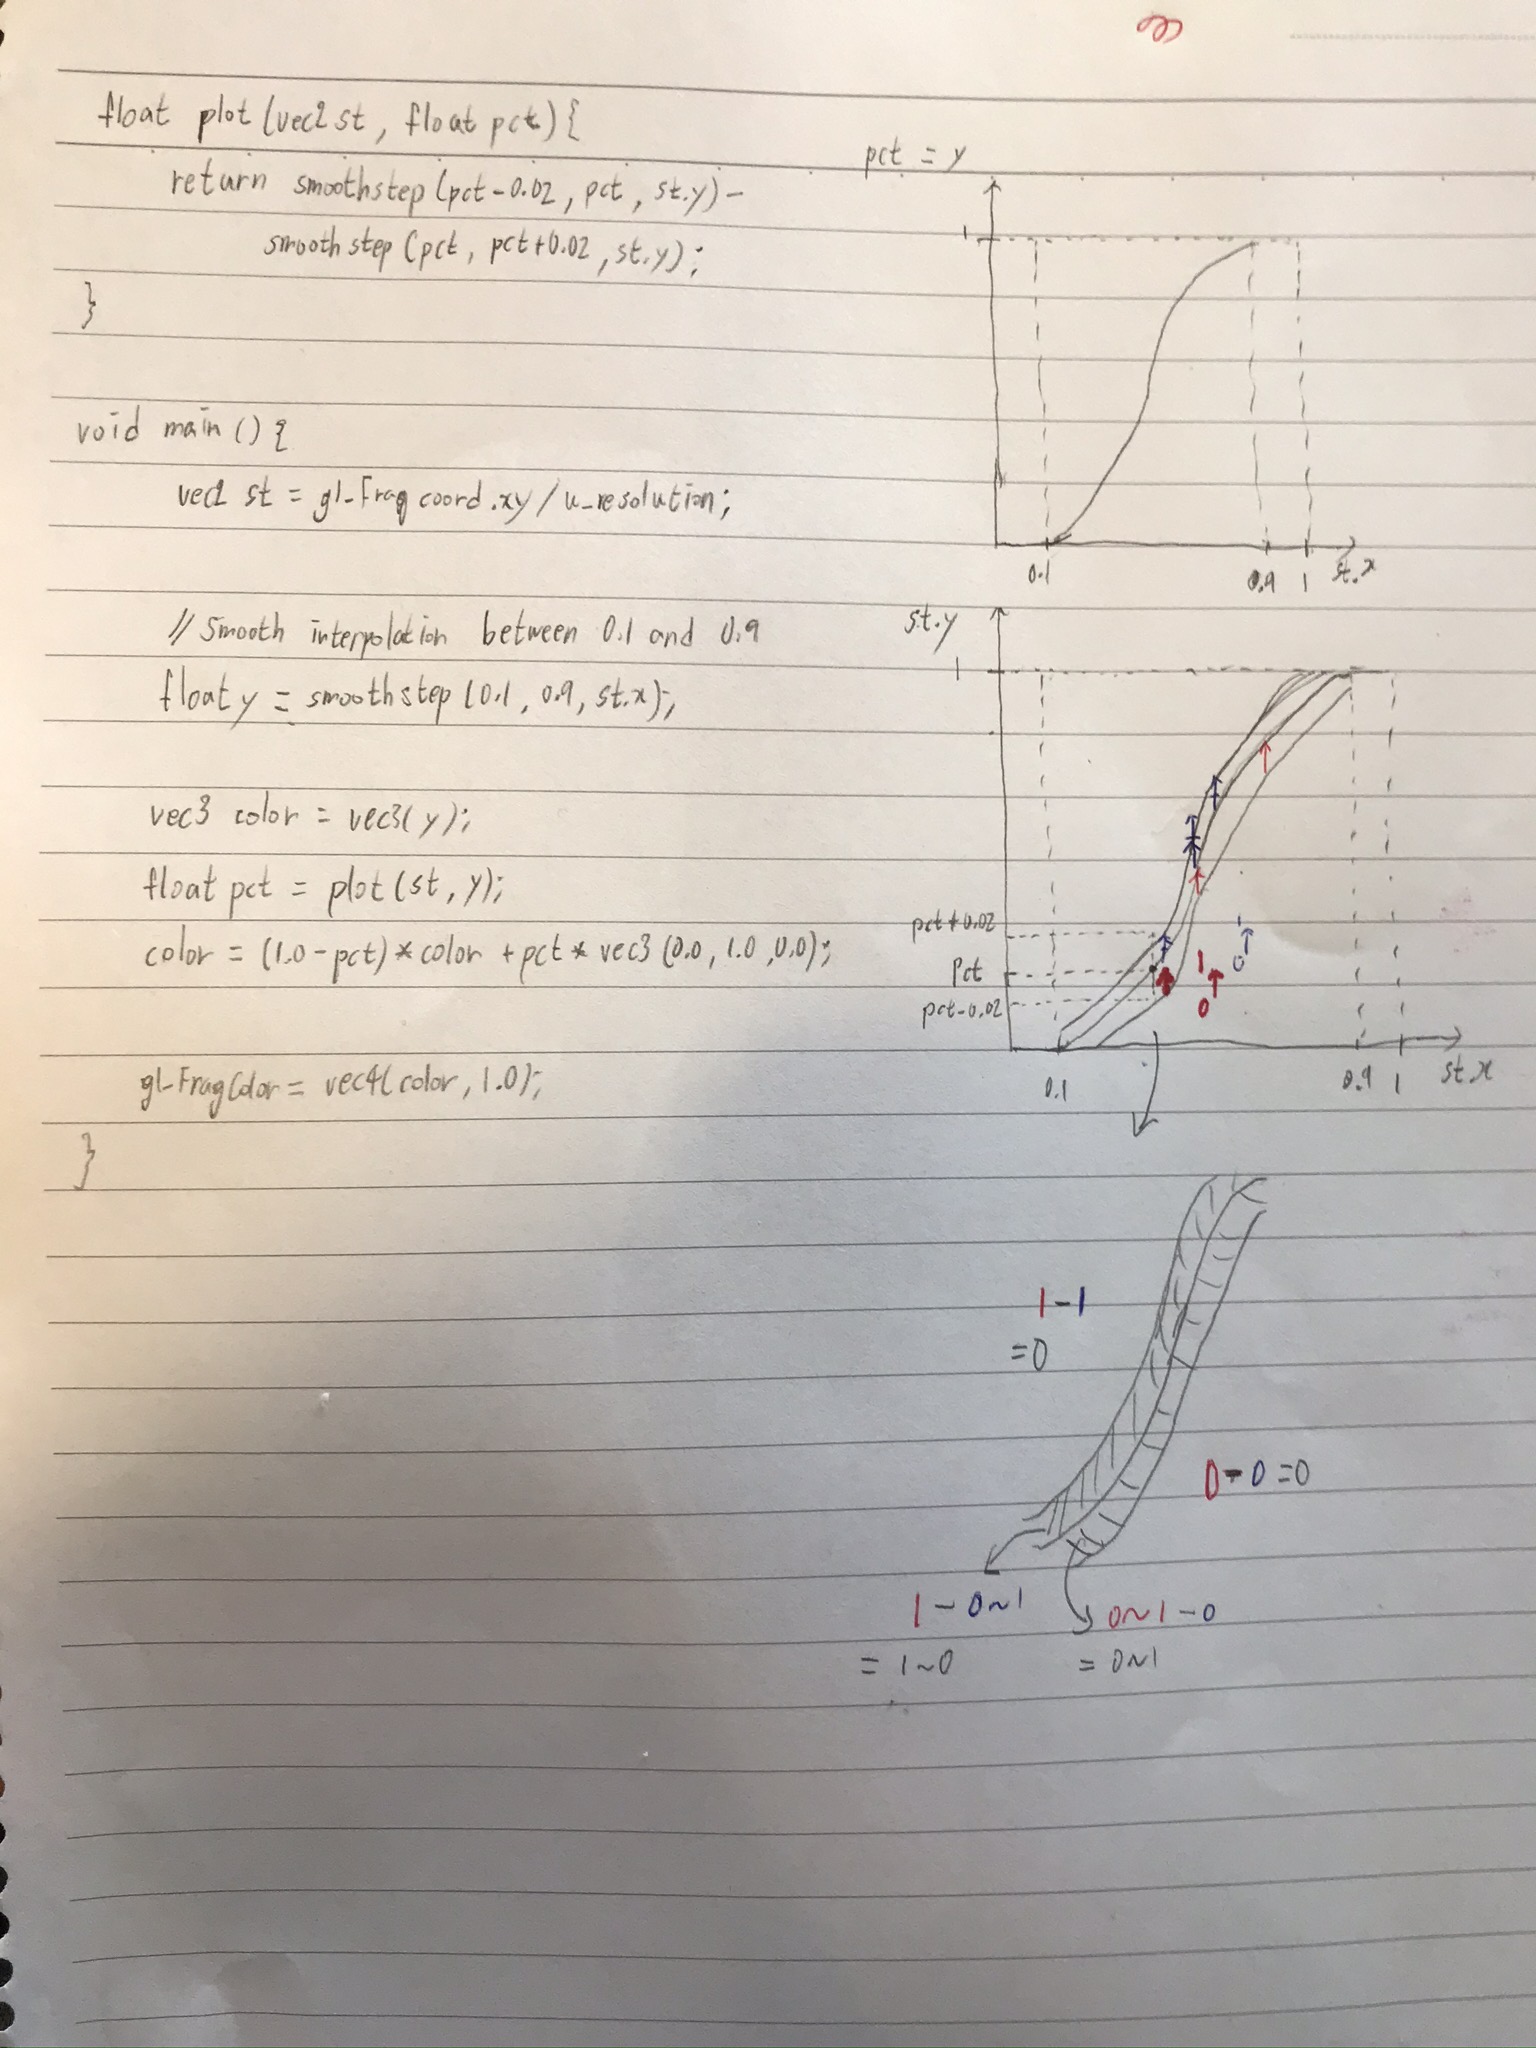 float plot (vec2 st, float pct) {
return smoothstep (pct-0.02, pct, st.y) -
smoothstep (pct, pct+0.02, st.y);
}
void main () {
vec2 st = gl_Frag coord.xy / u_resolution;
// Smooth interpolation between 0.1 and 0.9
float y = smoothstep (0.1, 0.9, st.x);
vec3 color = vec3(y);
float pct = plot (st, y);
color = (1.0-pct)*color + pct* vec3 (0.0, 1.0, 0.0);
gl_FragColor = vec4(color, 1.0);
}
pct = y
1
0.1
0.9
1
st.x
st.y
1
pct+0.02
pct
pct-0.02
1
0
1
0
0.1
0.9
1
st.x
1-1
=0
0-0=0
1-0~1
= 1~0
0~1-0
= 0~1